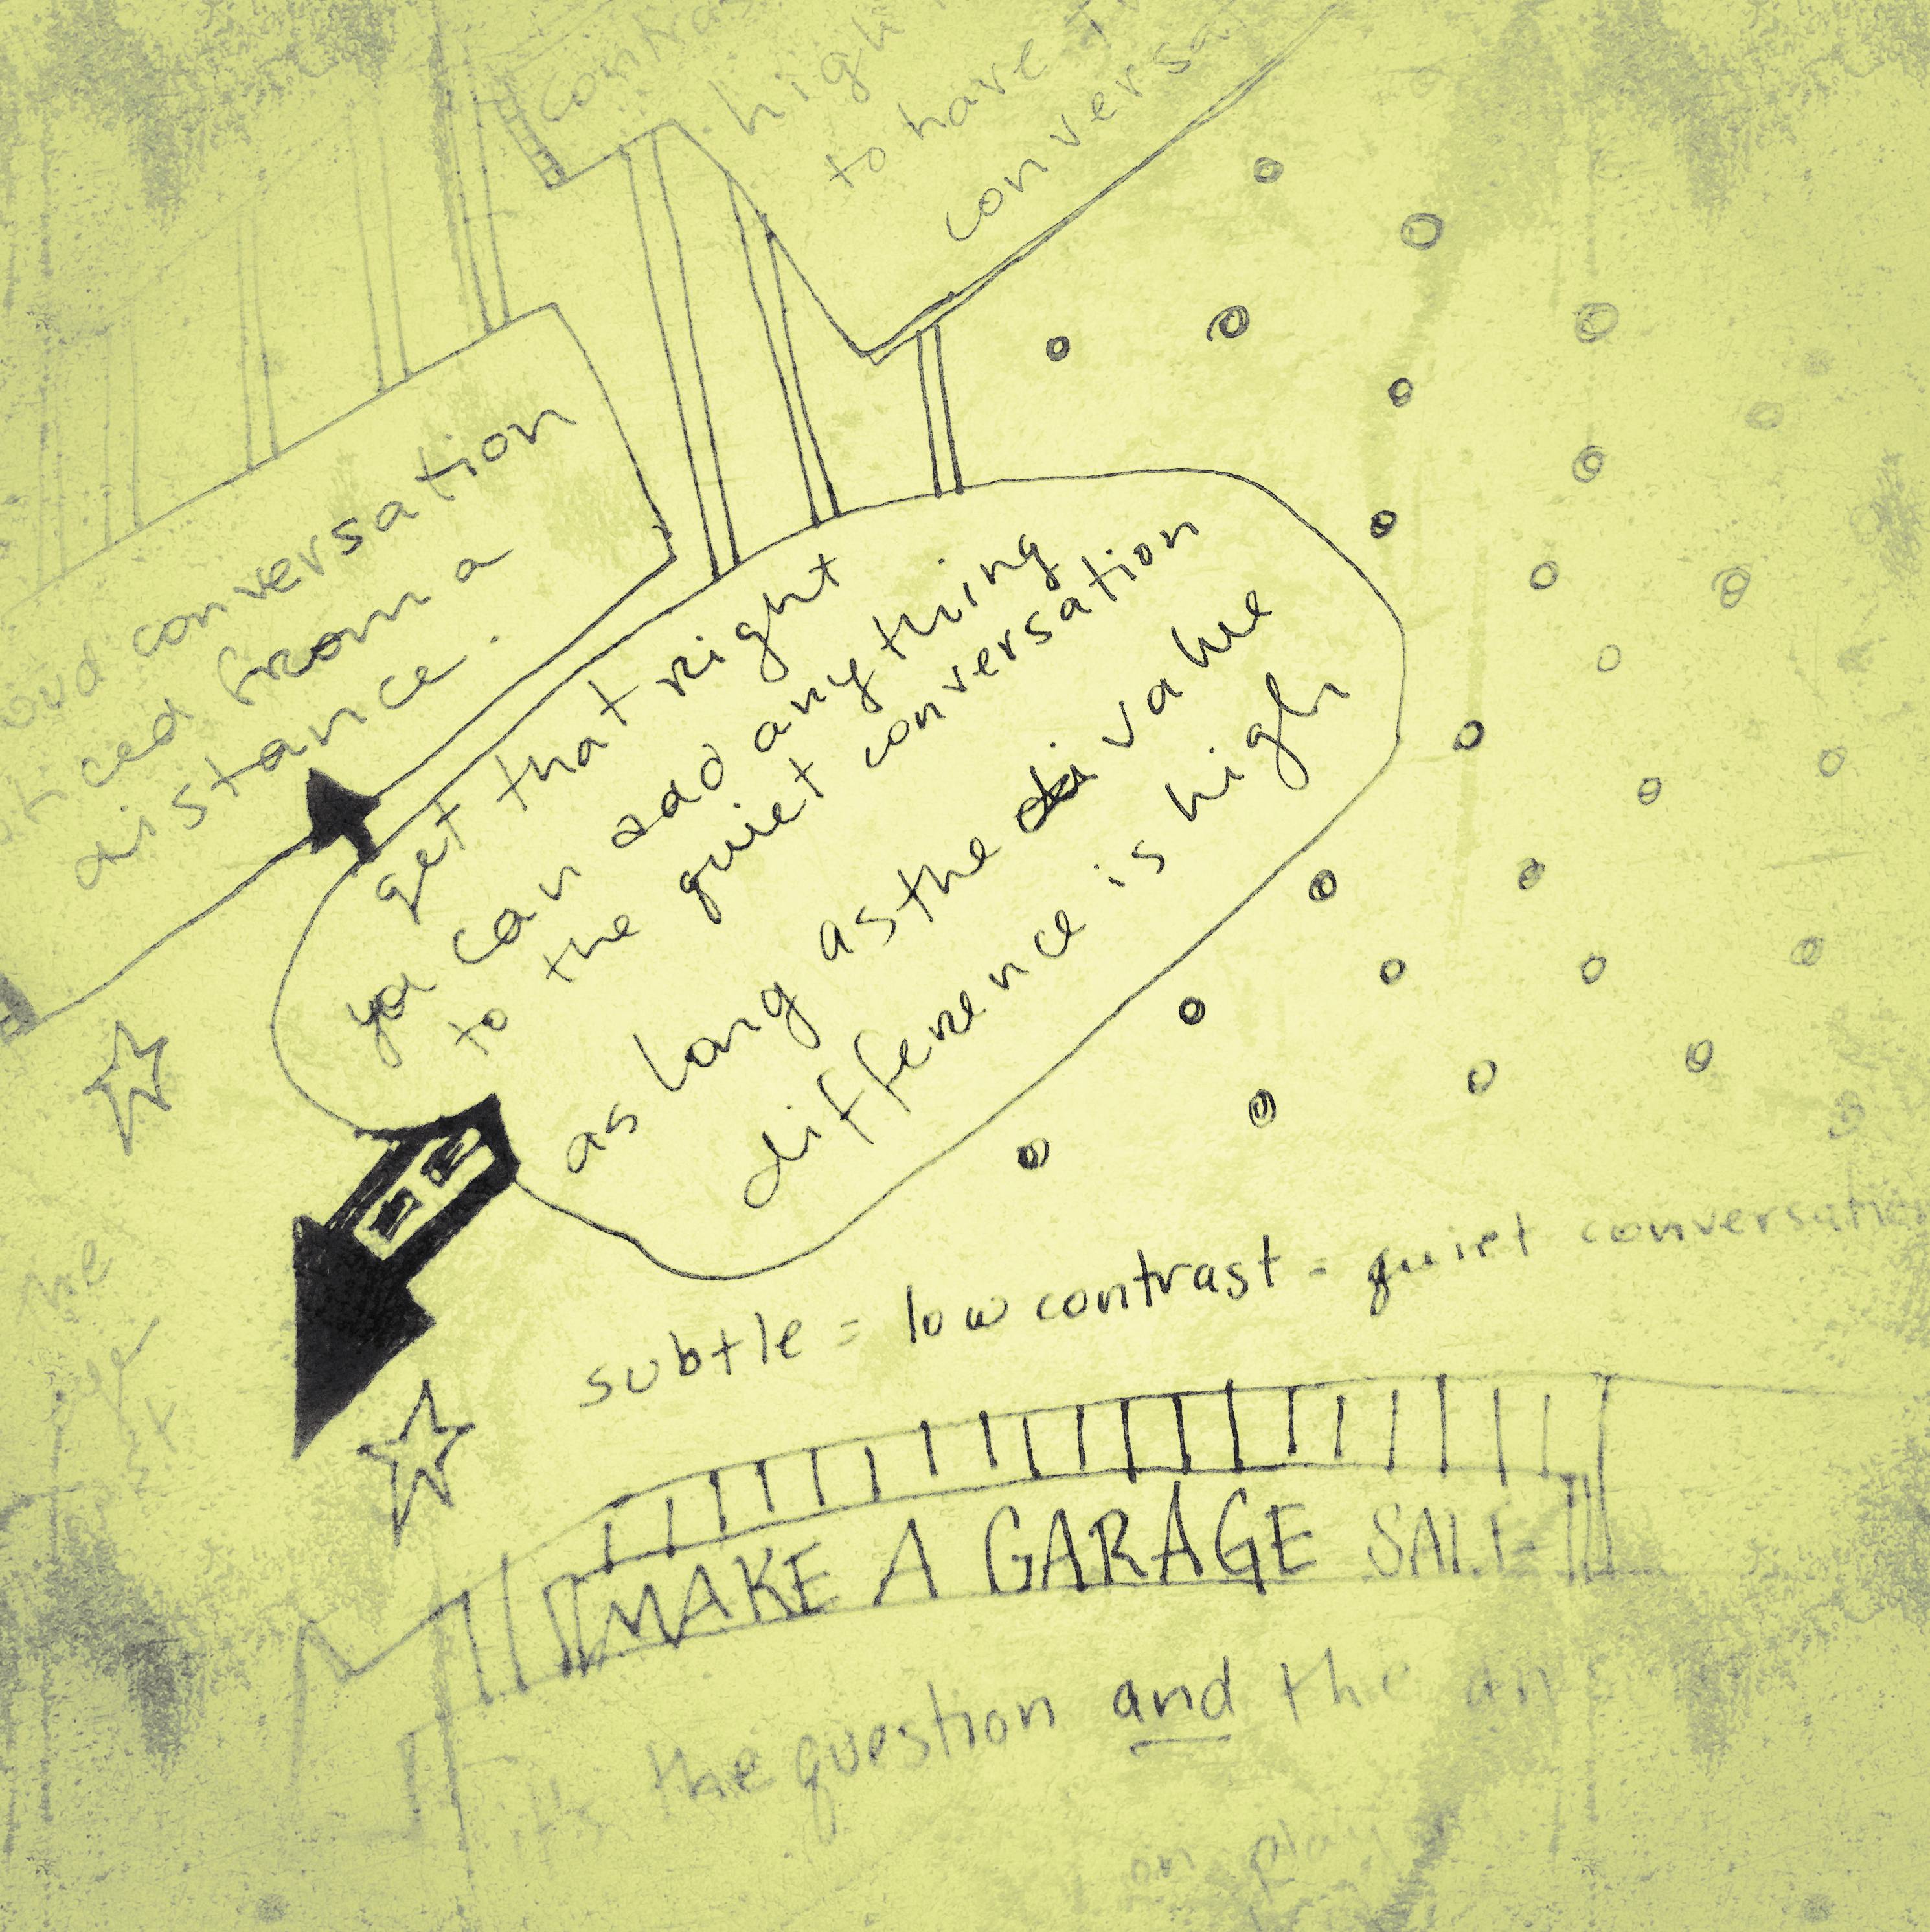 to have
conversation
from a
distance.
get that right
you can add anything
to the quiet conversation
as long as the value
difference is high
subtle = low contrast = quiet conversation
MAKE A GARAGE SALE
it's the question and the
on play